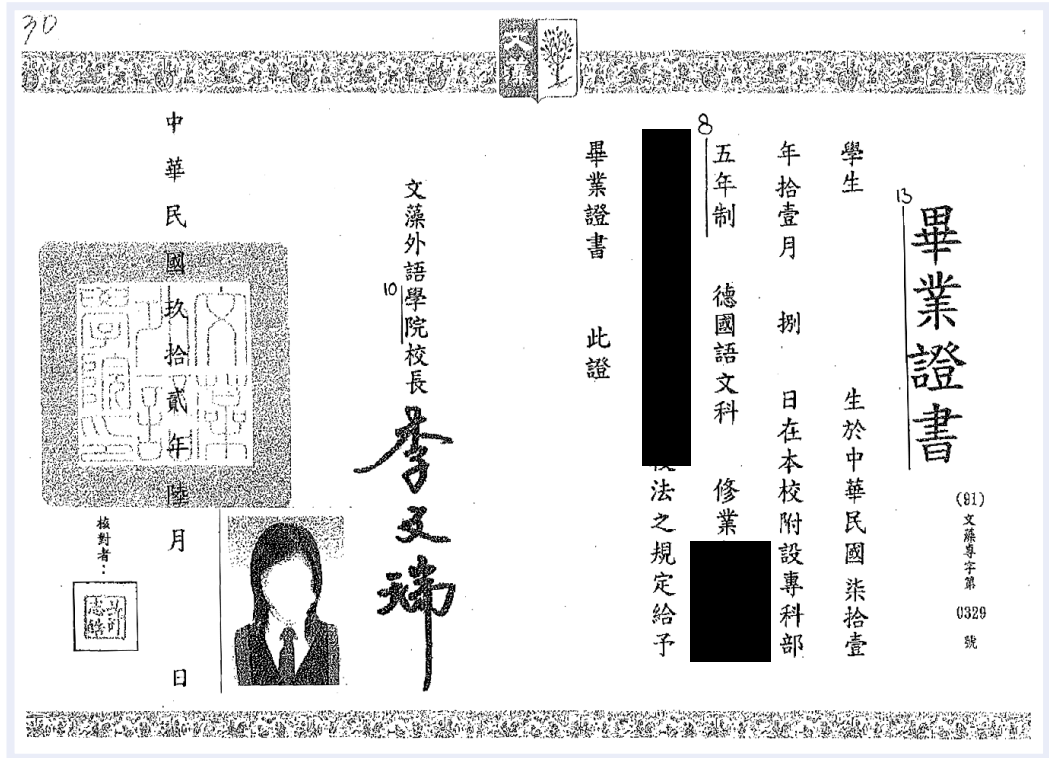 30
文藻
13
畢業證書
(91)
文藻專字第
0329
號
學生 生於中華民國柒拾壹
年拾壹月 捌 日在本校附設專科部
8
五年制 德國語文科 修業
法之規定給予
畢業證書 此證
10
文藻外語學院校長
李文瑞
中華民國玖拾貳年陸月 日
核對者：